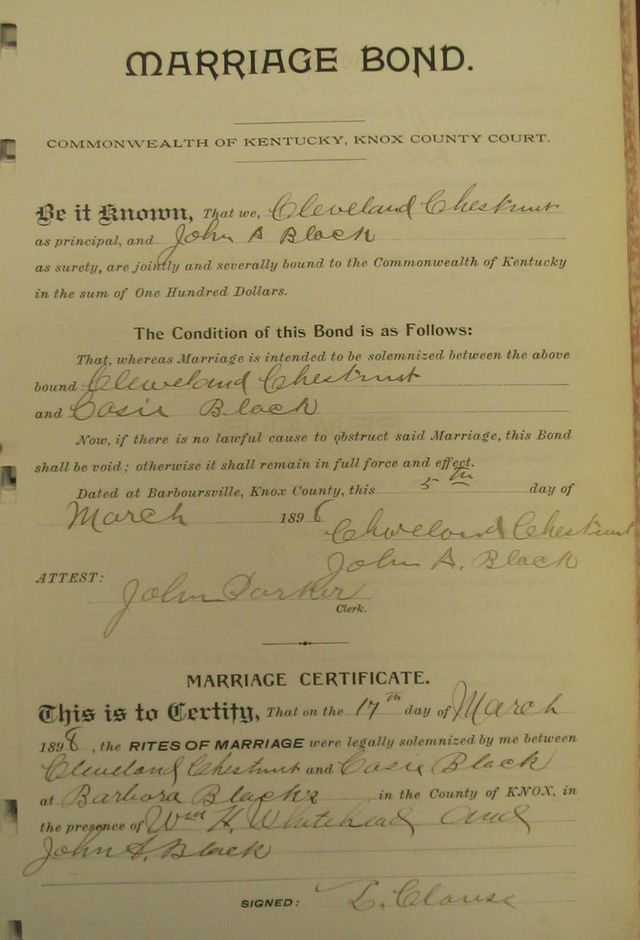 MARRIAGE BOND.
COMMONWEALTH OF KENTUCKY, KNOX COUNTY COURT.
Be it Known, That we, Cleveland Chestnut
as principal, and John A Black
as surety, are jointly and severally bound to the Commonwealth of Kentucky
in the sum of One Hundred Dollars.
The Condition of this Bond is as Follows:
That, whereas Marriage is intended to be solemnized between the above
bound Cleveland Chestnut
and Cosie Black
Now, if there is no lawful cause to obstruct said Marriage, this Bond
shall be void; otherwise it shall remain in full force and effect.
Dated at Barboursville, Knox County, this 5th day of
March 1898
Cleveland Chestnut
John A. Black
ATTEST:
John Parker
Clerk.
MARRIAGE CERTIFICATE.
This is to Certify, That on the 17th day of March
1898, the RITES OF MARRIAGE were legally solemnized by me between
Cleveland Chestnut and Cosie Black
at Barbora Blacks in the County of KNOX, in
the presence of Wm H. Whitehead And
John A. Black
SIGNED: L. Clouse